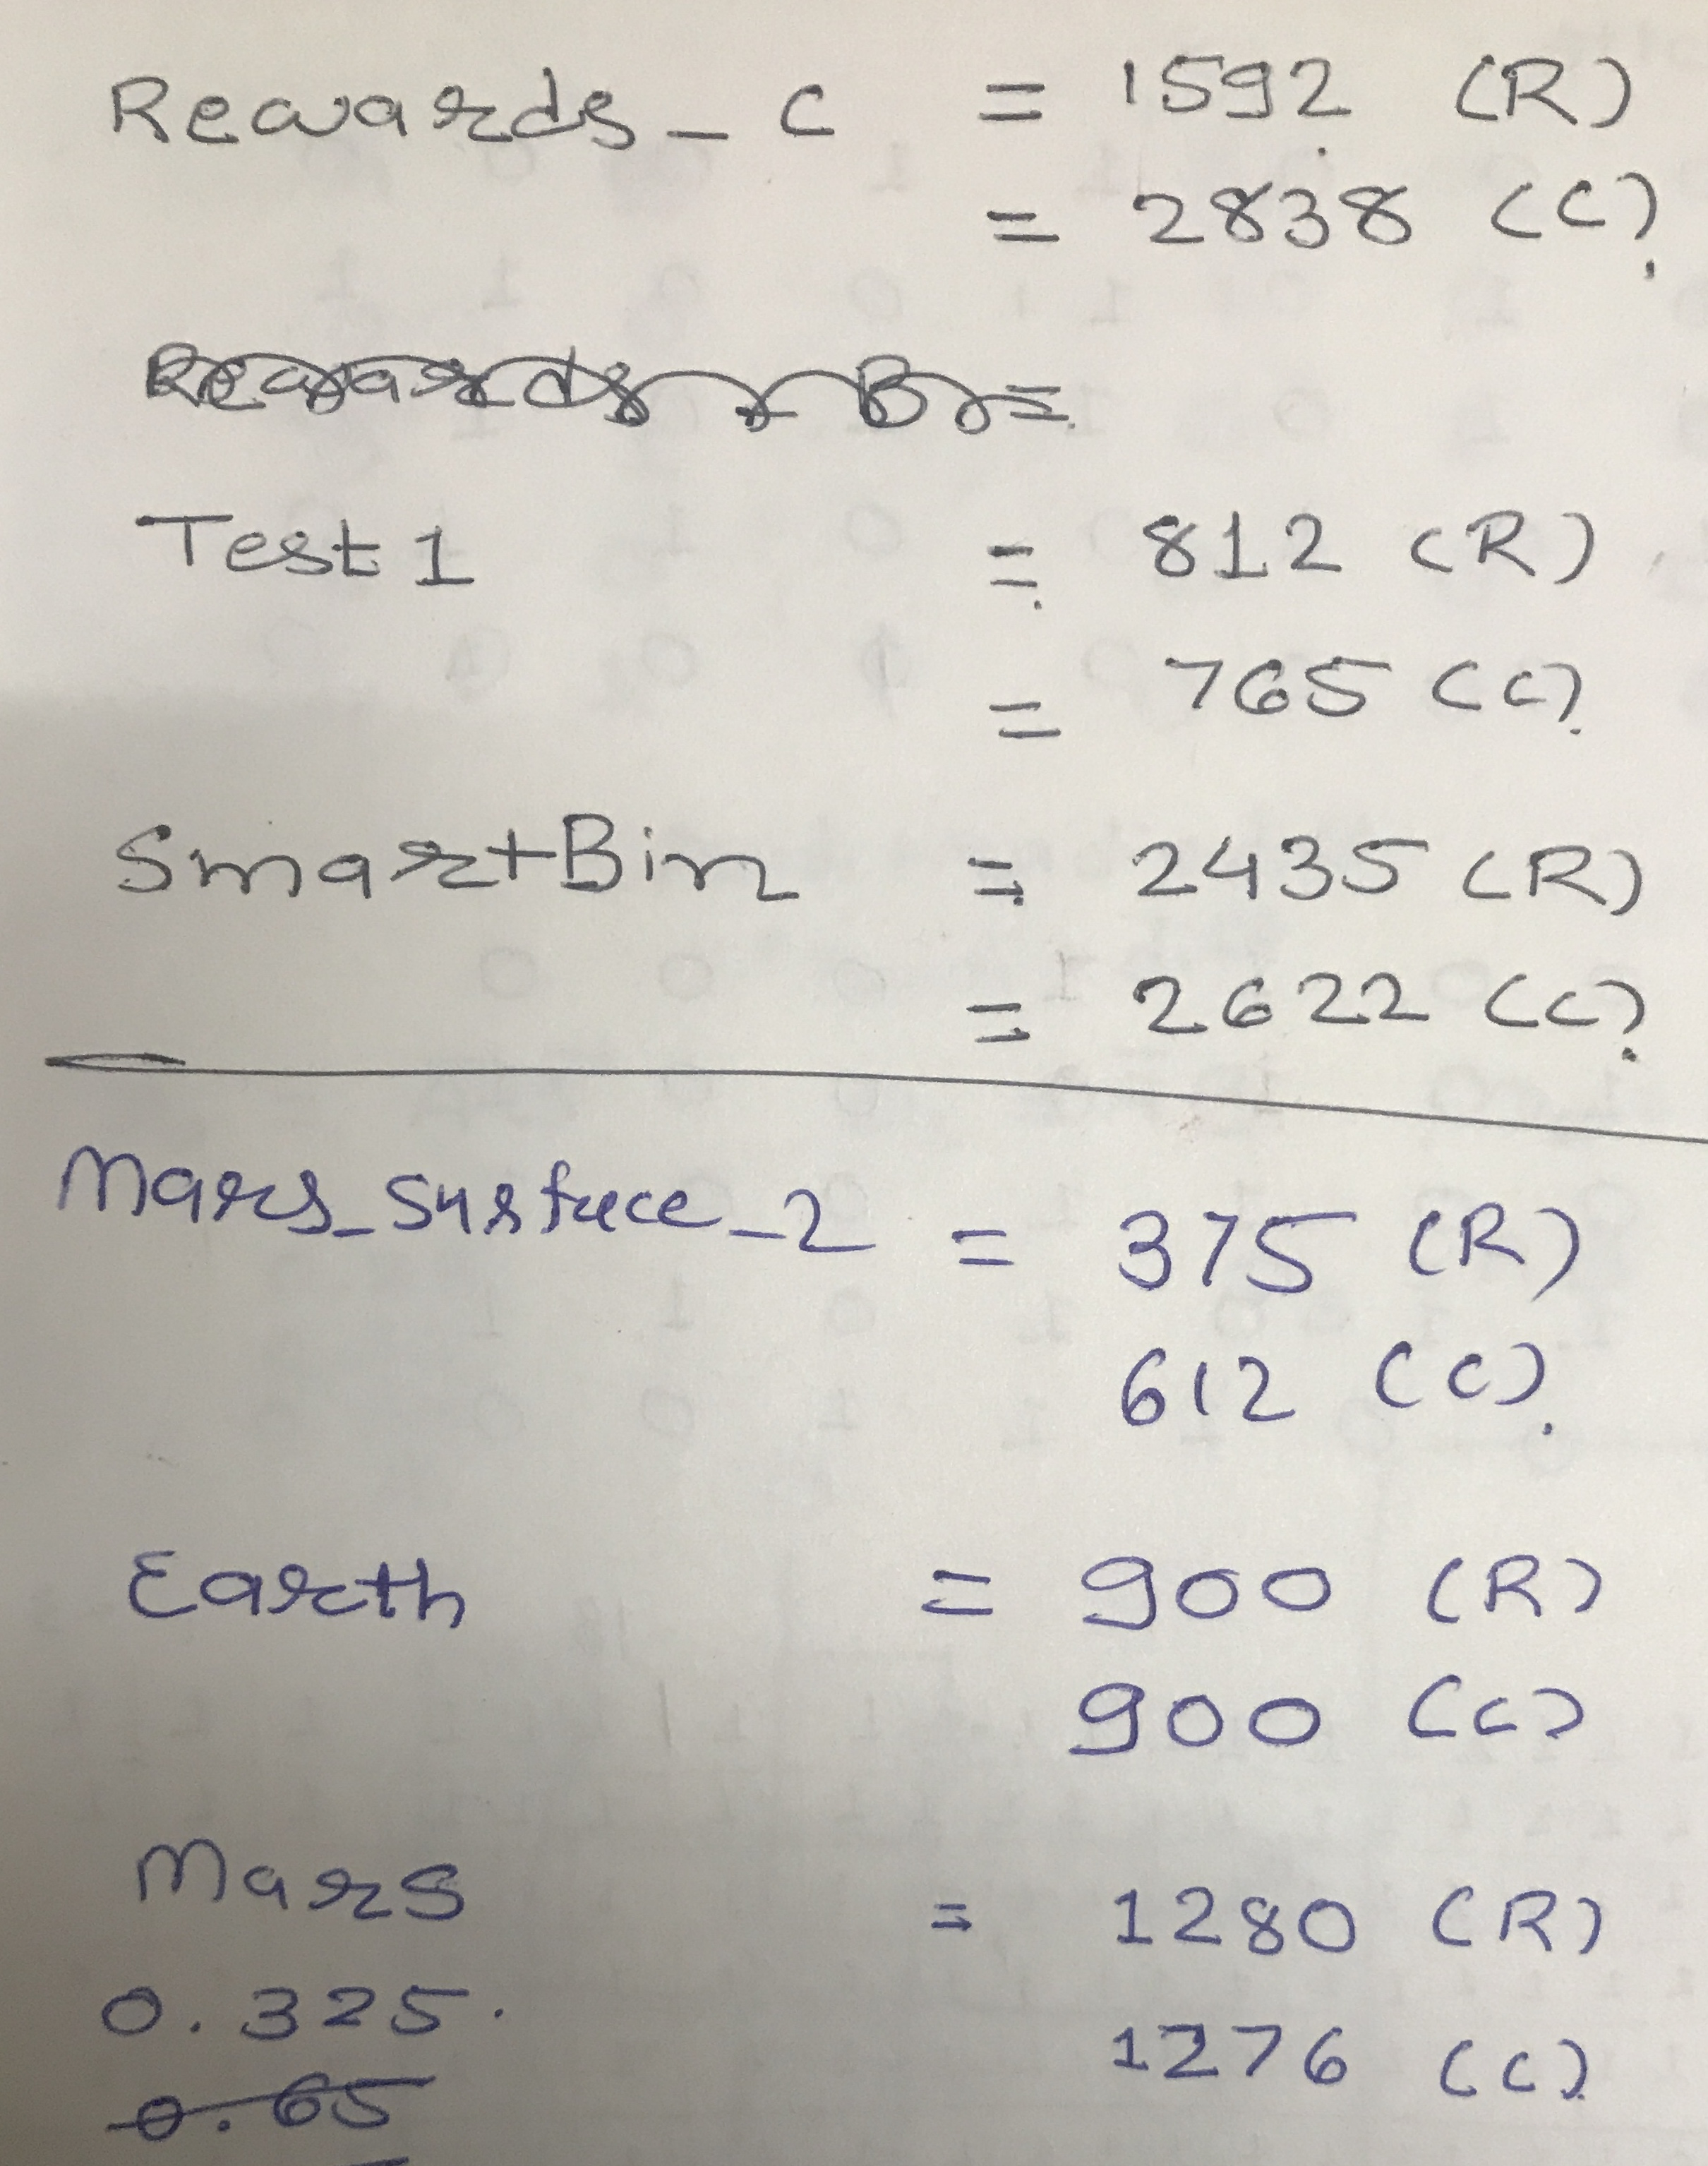 Rewards_C = 1592 (R)
= 2838 (C)
Rewards_B =
Test 1 = 812 (R)
= 765 (C)
SmartBin = 2435 (R)
= 2622 (C)
Mars_Surface_2 = 375 (R)
612 (C)
Earth = 900 (R)
900 (C)
Mars = 1280 (R)
0.325.
1276 (C)
0.65